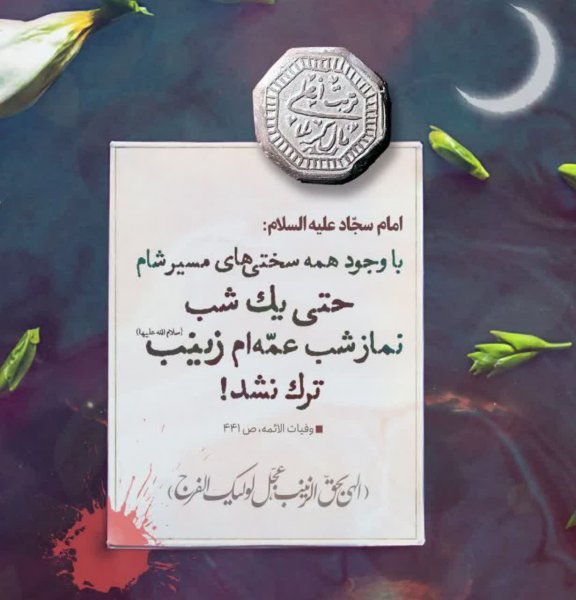 تربت اعلی
کربلا
امام سجّاد علیه السلام:
با وجود همه سختی‌های مسیر شام
حتی یك شب
نماز شب عمّه‌ام زینب (سلام الله علیها)
ترك نشد!
■ وفیات الائمه، ص ۴۴۱
(الهی بحقّ الزینب عجّل لولیک الفرج)